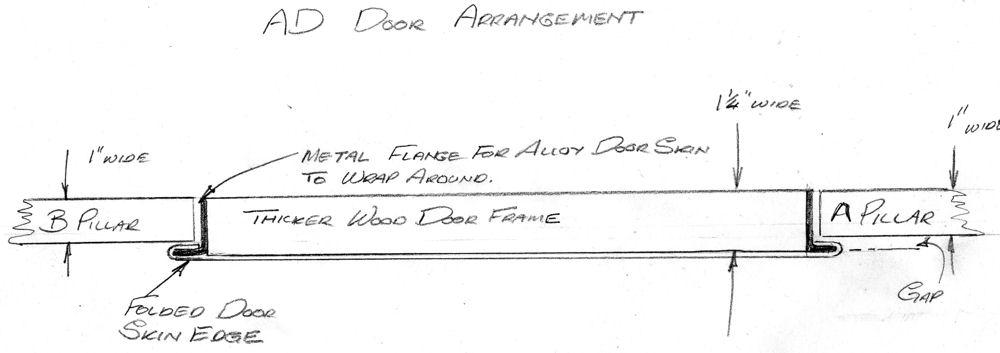 AD DOOR ARRANGEMENT
1¼" WIDE
1" WIDE
1" WIDE
METAL FLANGE FOR ALLOY DOOR SKIN
TO WRAP AROUND.
B PILLAR
THICKER WOOD DOOR FRAME
A PILLAR
GAP
FOLDED DOOR
SKIN EDGE